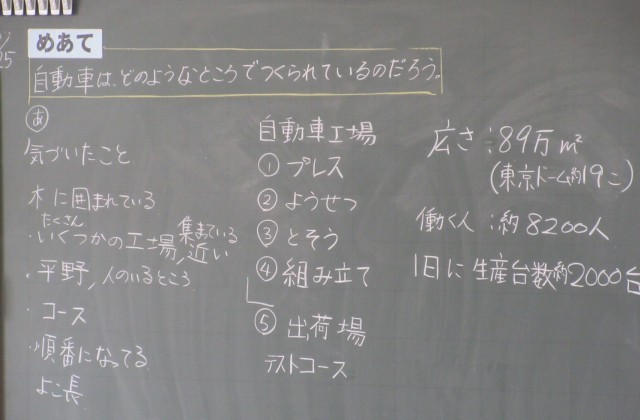 25
めあて
自動車は、どのようなところでつくられているのだろう。
あ
気づいたこと
木に囲まれている
たくさん
・いくつかの工場、近い
集まっている
・平野、人のいるところ
・コース
・順番になってる
よこ長
自動車工場
① プレス
② ようせつ
③ とそう
④ 組み立て
⑤ 出荷場
テストコース
広さ：89万m²
(東京ドーム約19こ)
働く人：約8200人
1日に生産台数約2000台